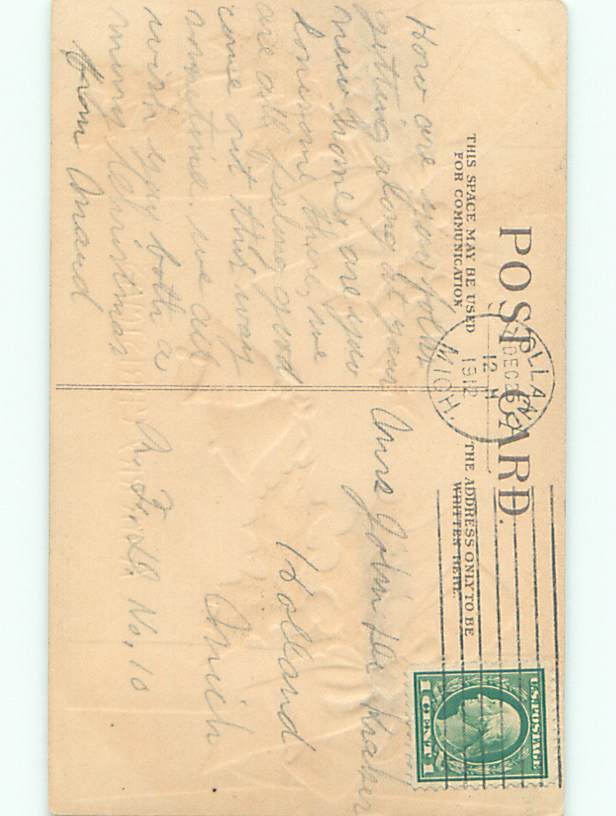 POST CARD.
THIS SPACE MAY BE USED
FOR COMMUNICATION
THE ADDRESS ONLY TO BE
WRITTEN HERE.
HOLLAND
DEC 26
12 M
1912
MICH.
U.S. POSTAGE
1 CENT 1
How are you folks
getting along at your
new home, are you
lonesome there, we
are all feeling good
come out this way
sometime. we all
wish you both a
Christmas
from
Mrs John
Holland
Mich
R. F. D. No, 10